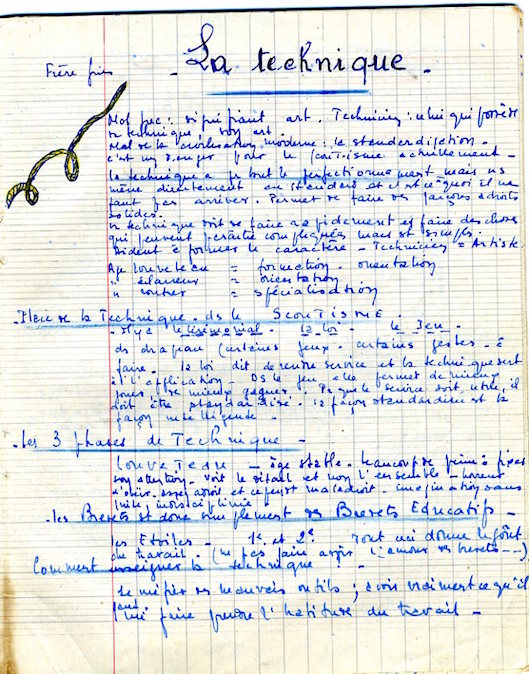 Frère gris
- La technique -
Mot grec : signifiant art. Technicien : celui qui possède
sa technique, son art.
Mal de la civilisation moderne : la standardisation -
c'est un danger pour le scoutisme actuellement -
La technique a pr but le perfectionnement mais ns
mène directement au standard et il est ce à quoi il ne
faut pas arriver. Permet de faire des garçons adroits
solides.
La technique doit se faire rapidement et faire des choses
qui peuvent paraître compliquées mais st simples.
Aident à former le caractère - Technicien = Artiste.
Au louveteau = formation - orientation
" éclaireur = orientation
" routier = spécialisation
- Place de la Technique ds le Scoutisme -
- Il y a le cérémonial - la loi - le Jeu -
ds drapeau (certaines jeux - certains gestes - à
faire - la loi dit de rendre service et la technique sert
à l'application - Ds le jeu elle permet de mieux
jouer, de mieux gagner. Pr que le service soit utile, il
doit être standardisé. la façon standardisée est la
façon intelligente -
- Les 3 phases de Technique -
Louveteau - âge stable - beaucoup de peine à fixer
son attention - voit le détail et non l'ensemble -
imagination sans
- les Brevets st donc simplement des Brevets Educatif -
les Etoiles - 1e et 2e
du travail - (ne pas faire avoir l'amour des brevets ---)
Comment enseigner la technique -
Se méfier des mauvais outils ; avoir vraiment ce qu'il
faut.
lui faire prendre l'habitude du travail -